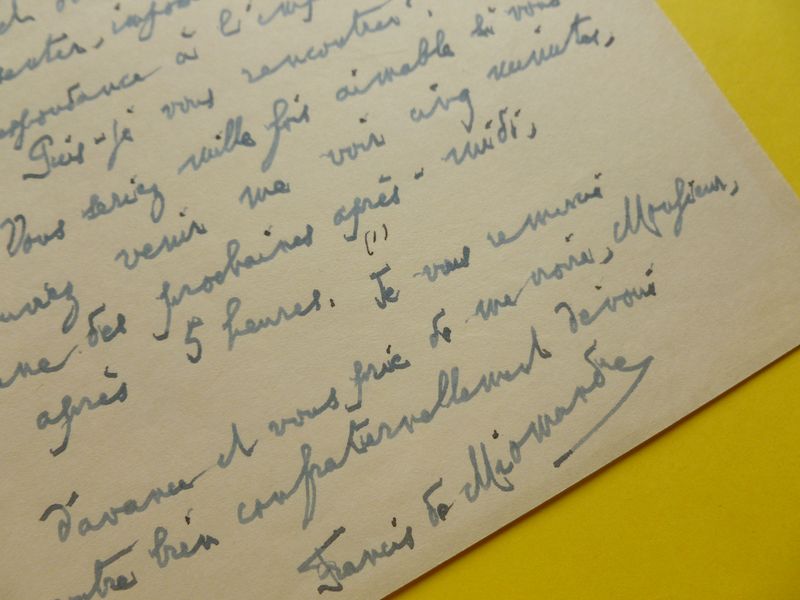 Puis-je vous rencontrer?
Vous seriez mille fois aimable si vous
venir me voir cinq minutes,
une des prochaines après-midi,
(1)
après 5 heures. Je vous remercie
d'avance et vous prie de me croire, Monsieur,
bien confraternellement dévoué
Francis de Miomandre